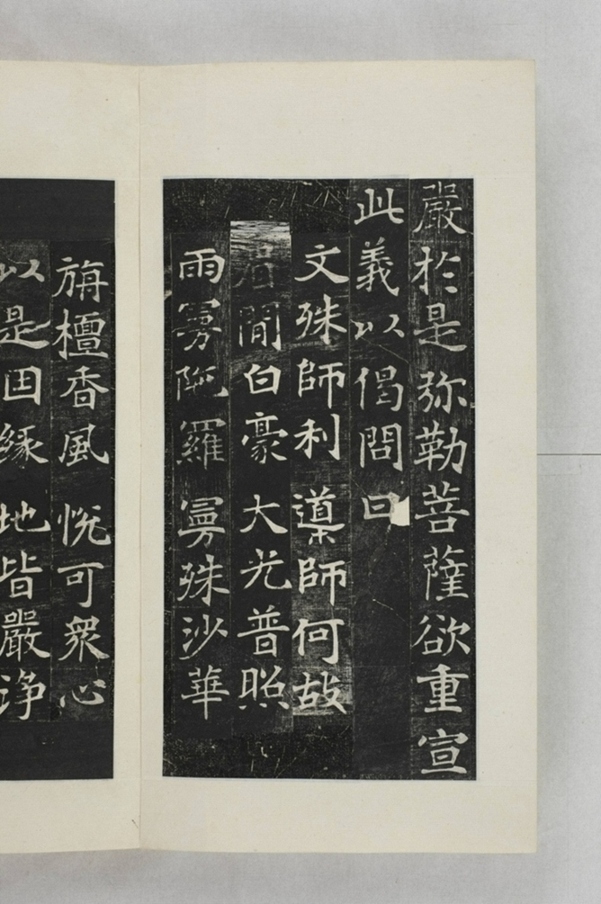 嚴扵是弥勒菩薩欲重宣
此義以偈問曰
文殊師利 導師何故
眉間白豪 大光普照
雨曼陁羅 曼殊沙華
旃檀香風 悅可衆心
以是因緣 地皆嚴浄